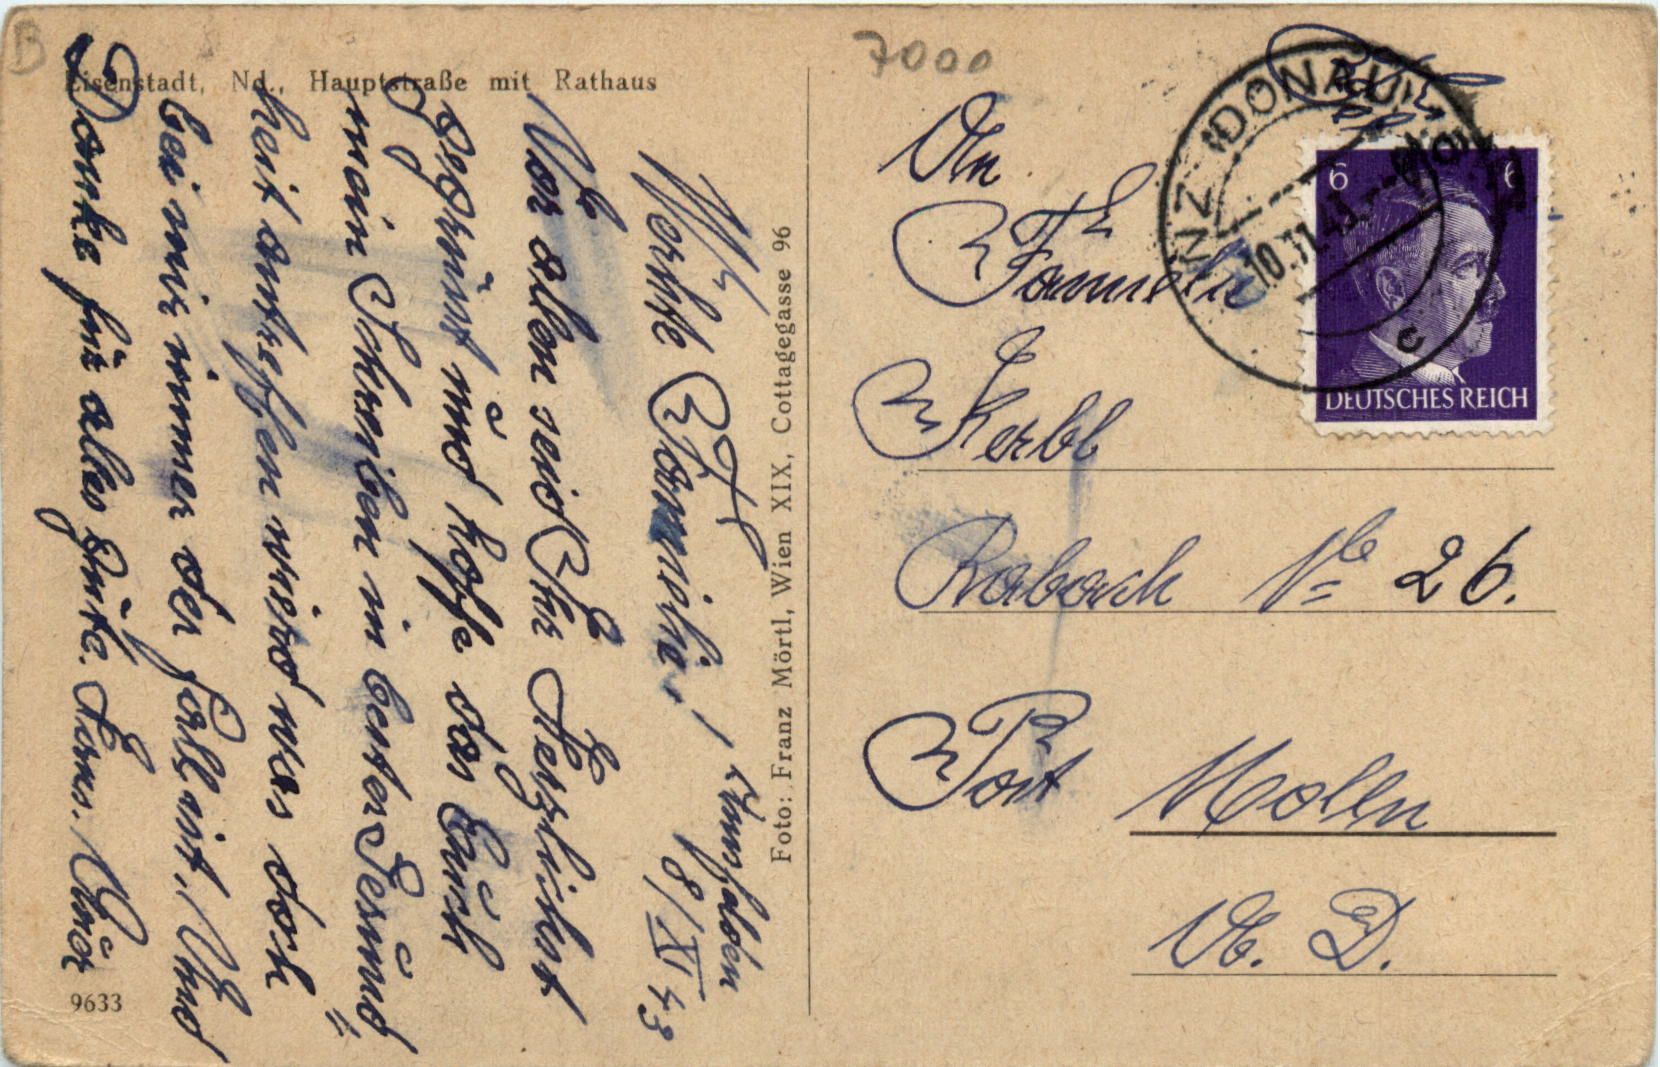 B
7000
Eisenstadt, Nd., Hauptstraße mit Rathaus
8/XI 43
Werthe Familie!
Vor allen seid Ihr Herzlichst
gegrüsst und hoffe das Euch
mein Schreiben in bester Gesund
heit antreffen wird was doch
bei mir immer der fall ist. Und
Danke für alles gute.
9633
Foto: Franz Mörtl, Wien XIX, Cottagegasse 96
An
Familie
Kerbl
Rabach No 26.
Post Molln
O. D.
LINZ (DONAU)
10.11.43
c
6 6
DEUTSCHES REICH